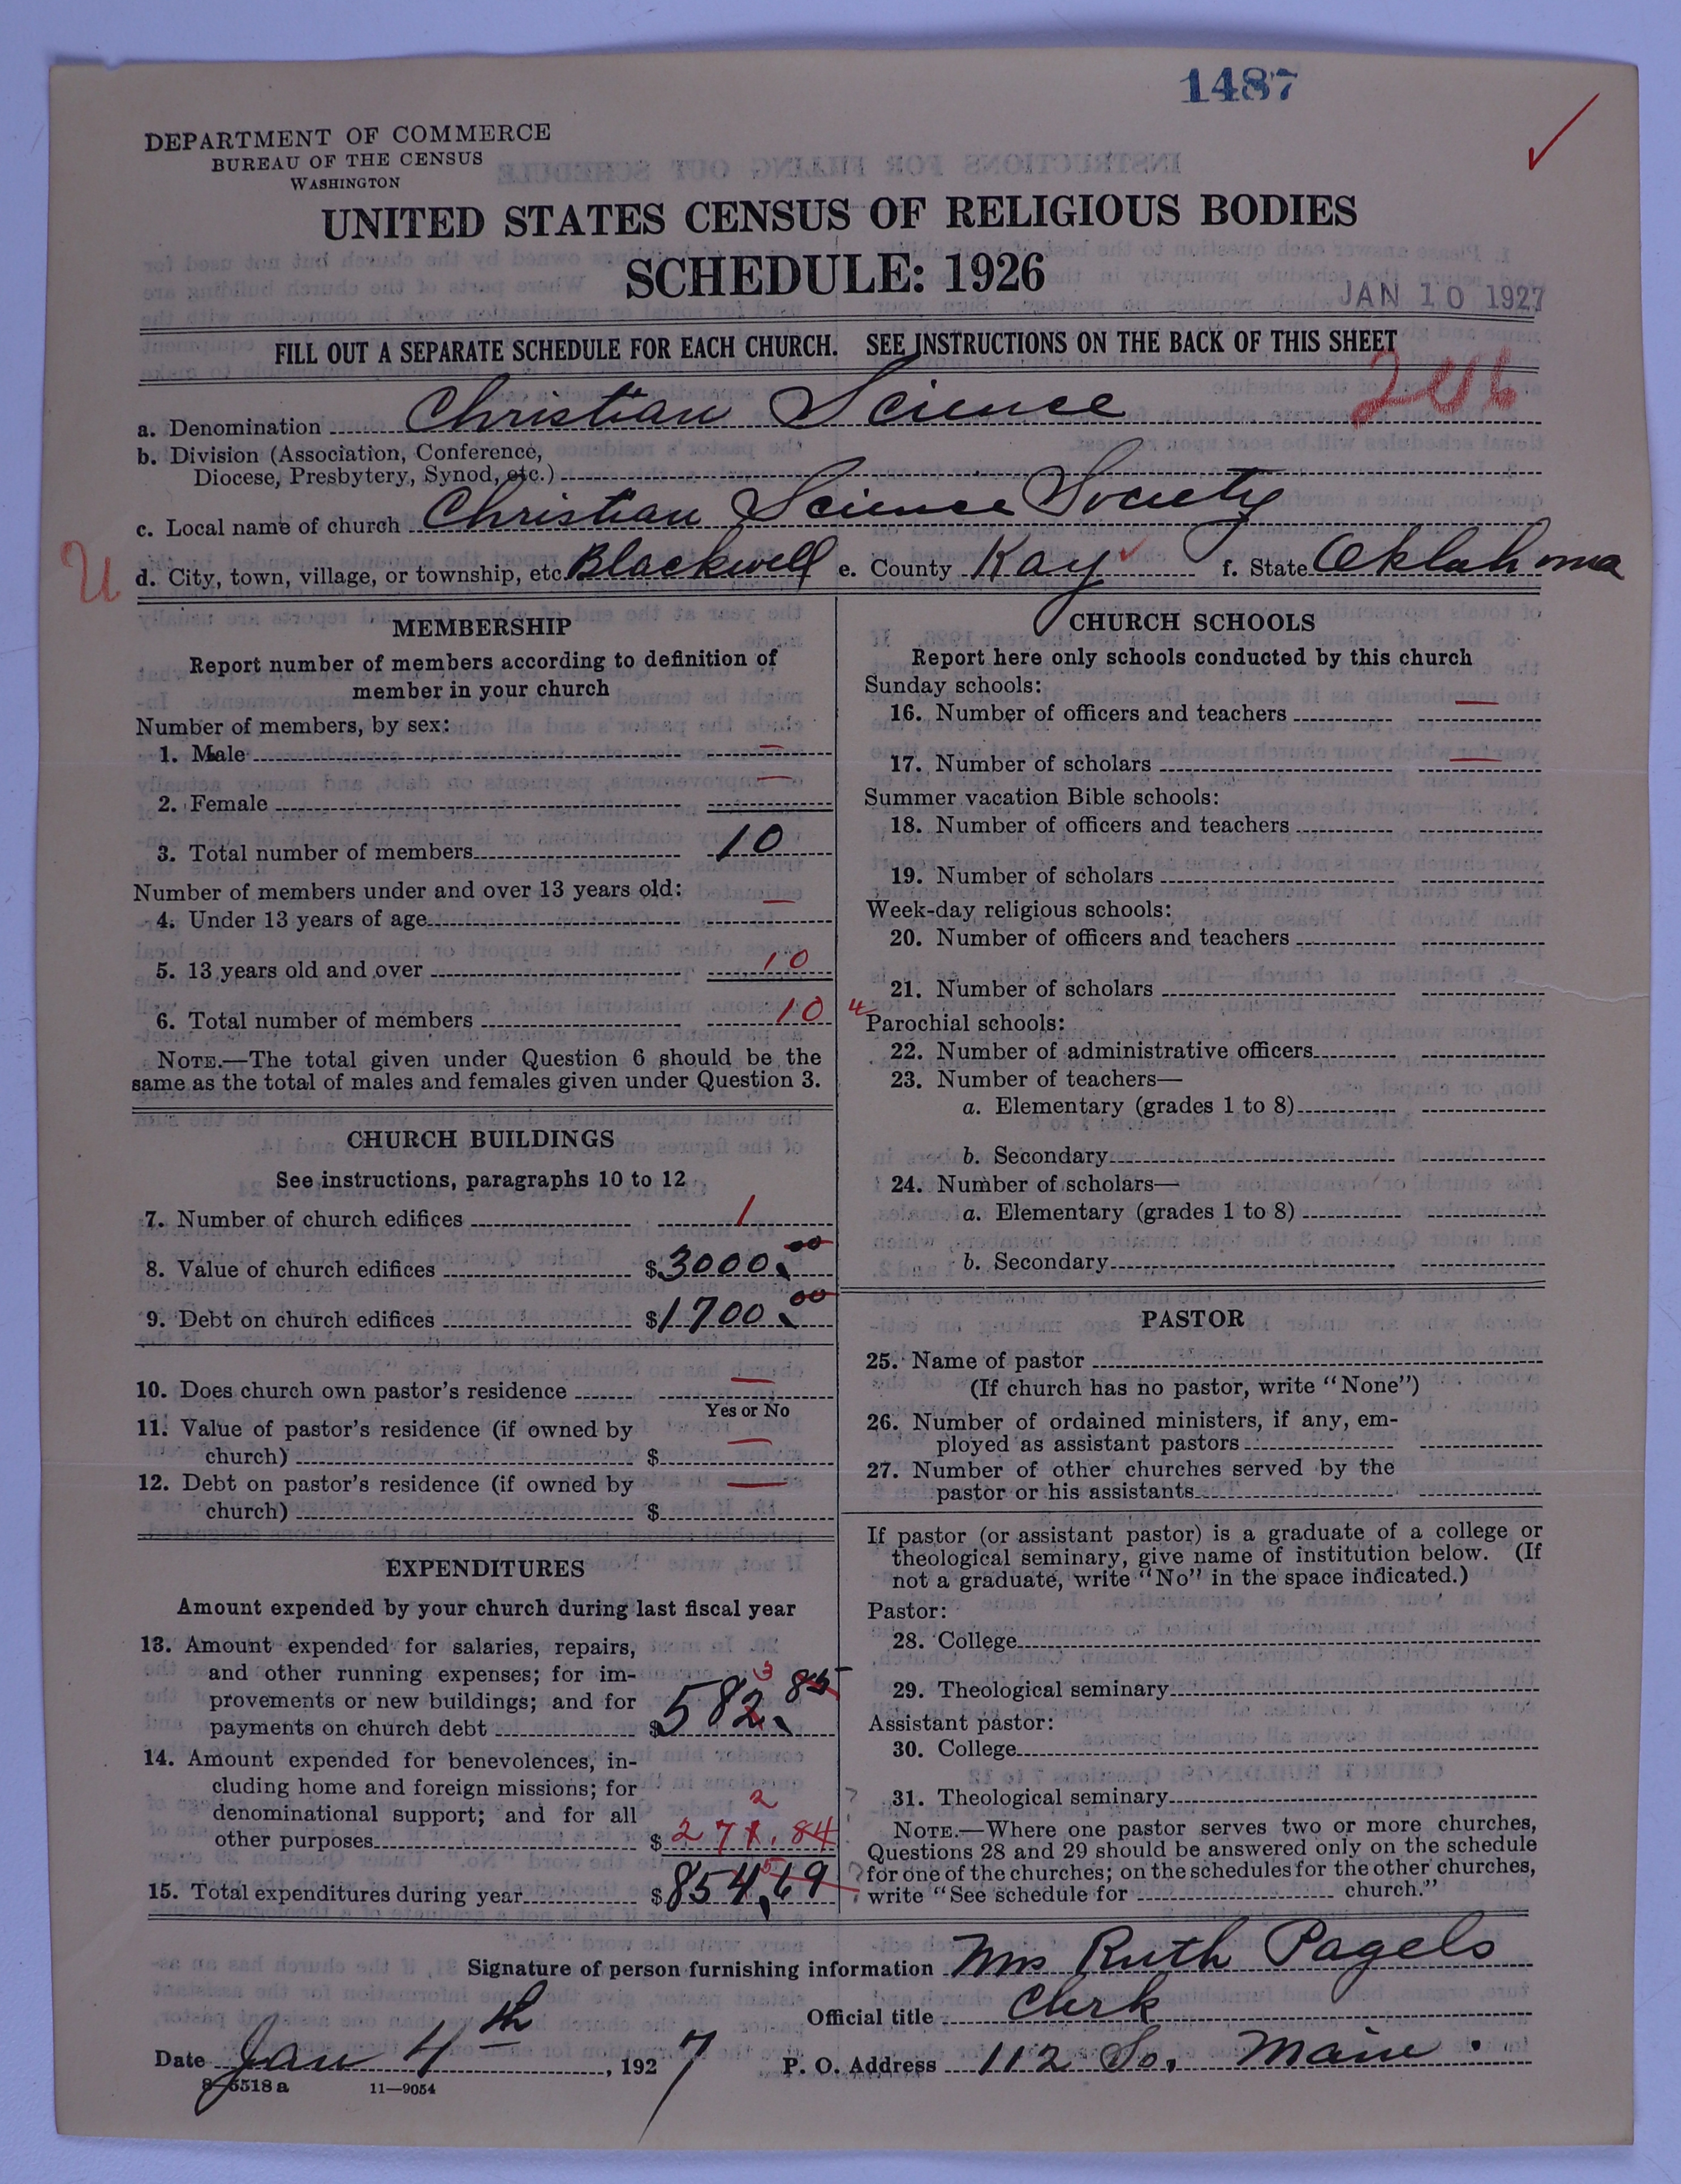 1487
DEPARTMENT OF COMMERCE
BUREAU OF THE CENSUS
WASHINGTON
UNITED STATES CENSUS OF RELIGIOUS BODIES
SCHEDULE: 1926
JAN 10 1927
FILL OUT A SEPARATE SCHEDULE FOR EACH CHURCH. SEE INSTRUCTIONS ON THE BACK OF THIS SHEET
246
a. Denomination Christian Science
b. Division (Association, Conference,
Diocese, Presbytery, Synod, etc.)
c. Local name of church Christian Science Society
U d. City, town, village, or township, etc. Blackwell e. County Kay f. State Oklahoma
MEMBERSHIP
Report number of members according to definition of
member in your church
Number of members, by sex:
1. Male —
2. Female —
3. Total number of members 10
Number of members under and over 13 years old:
4. Under 13 years of age —
5. 13 years old and over 10
6. Total number of members 10
NOTE.—The total given under Question 6 should be the
same as the total of males and females given under Question 3.
CHURCH BUILDINGS
See instructions, paragraphs 10 to 12
7. Number of church edifices 1
8. Value of church edifices $3000.00
9. Debt on church edifices $1700.00
10. Does church own pastor's residence —
Yes or No
11. Value of pastor's residence (if owned by
church) $ —
12. Debt on pastor's residence (if owned by
church) $ —
EXPENDITURES
Amount expended by your church during last fiscal year
13. Amount expended for salaries, repairs,
and other running expenses; for im-
provements or new buildings; and for
3
payments on church debt $582.85
14. Amount expended for benevolences, in-
cluding home and foreign missions; for
denominational support; and for all
2
other purposes $271.84
5
15. Total expenditures during year $854.69
CHURCH SCHOOLS
Report here only schools conducted by this church
Sunday schools:
16. Number of officers and teachers —
17. Number of scholars —
Summer vacation Bible schools:
18. Number of officers and teachers
19. Number of scholars
Week-day religious schools:
20. Number of officers and teachers
21. Number of scholars
4
Parochial schools:
22. Number of administrative officers
23. Number of teachers—
a. Elementary (grades 1 to 8)
b. Secondary
24. Number of scholars—
a. Elementary (grades 1 to 8)
b. Secondary
PASTOR
25. Name of pastor
(If church has no pastor, write "None")
26. Number of ordained ministers, if any, em-
ployed as assistant pastors
27. Number of other churches served by the
pastor or his assistants
If pastor (or assistant pastor) is a graduate of a college or
theological seminary, give name of institution below. (If
not a graduate, write "No" in the space indicated.)
Pastor:
28. College
29. Theological seminary
Assistant pastor:
30. College
31. Theological seminary
NOTE.—Where one pastor serves two or more churches,
Questions 28 and 29 should be answered only on the schedule
for one of the churches; on the schedules for the other churches,
write "See schedule for church."
Signature of person furnishing information Mrs Ruth Pagels
Official title Clerk
Date Jan 4th, 1927 P. O. Address 112 So. Main.
8-5518 a 11—9054